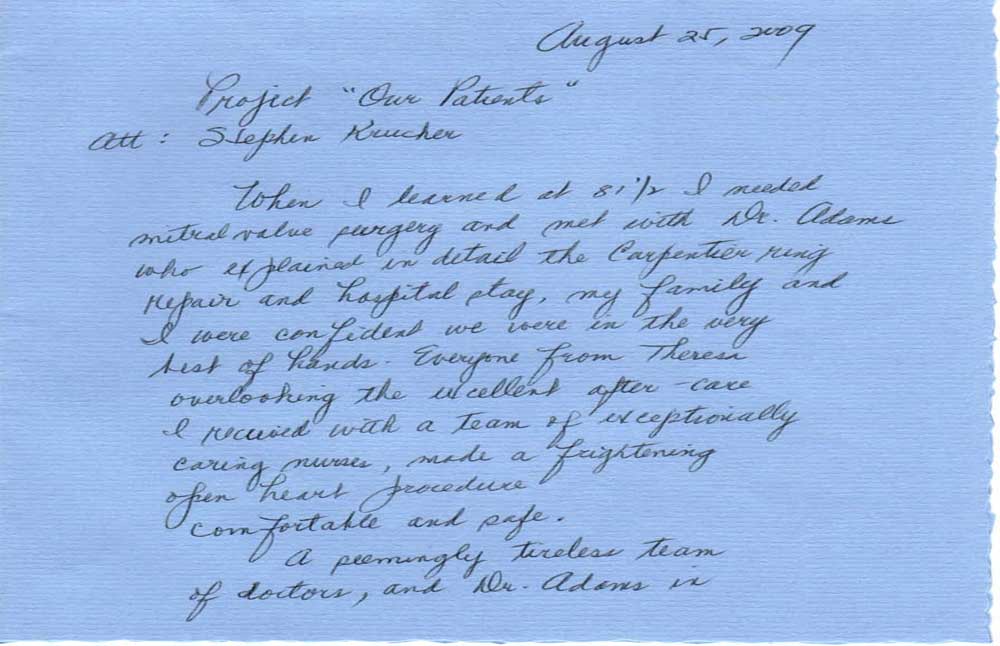 August 25, 2009
Project "Our Patients"
Att: Stephen Krucher
When I learned at 81 1/2 I needed
mitral valve surgery and met with Dr. Adams
who explained in detail the Carpentier ring
repair and hospital stay, my family and
I were confident we were in the very
best of hands. Everyone from Theresa
overlooking the excellent after-care
I received with a team of exceptionally
caring nurses, made a frightening
open heart procedure
comfortable and safe.
A seemingly tireless team
of doctors, and Dr. Adams in